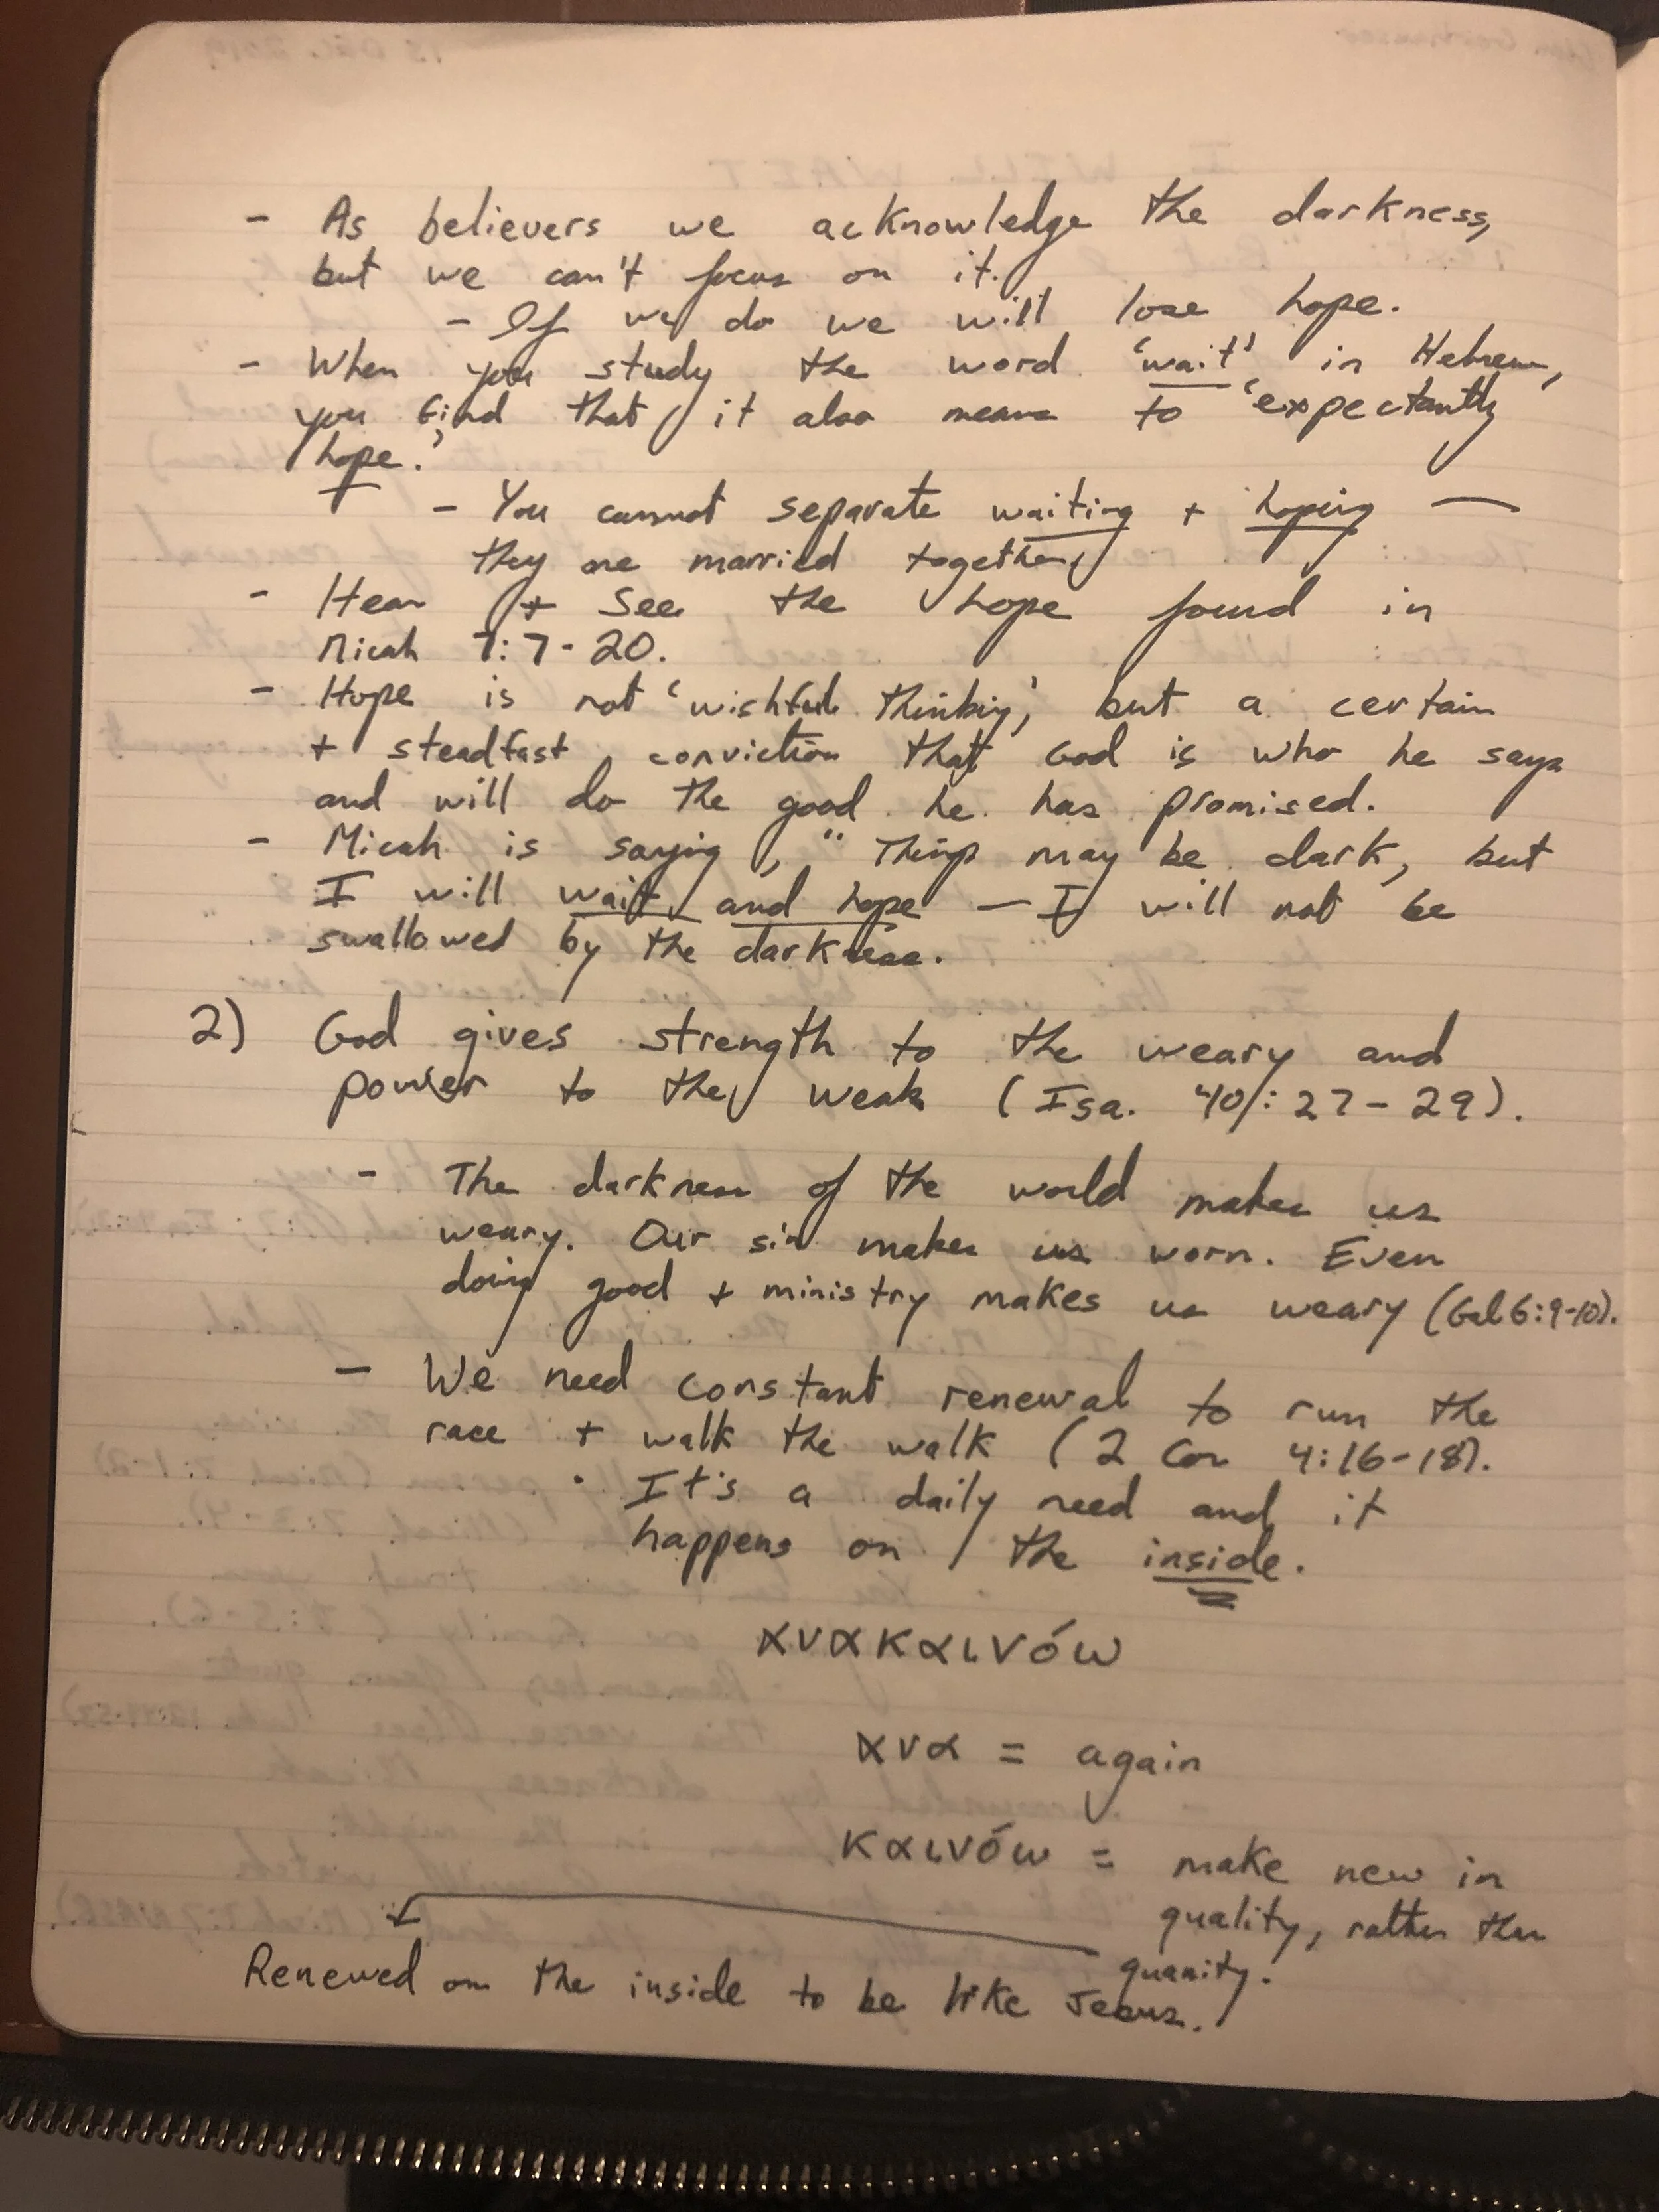 - As believers we acknowledge the darkness,
but we can't focus on it.
- If we do we will lose hope.
- When you study the word 'wait' in Hebrew,
you find that it also means to 'expectantly
hope.'
- You cannot separate waiting + hoping —
they are married together
- Hear + See the hope found in
Micah 7:7-20.
- Hope is not 'wishful thinking,' but a certain
+ steadfast conviction that God is who he says
and will do the good he has promised.
- Micah is saying, "Things may be dark, but
I will wait and hope — I will not be
swallowed by the darkness.
2) God gives strength to the weary and
power to the weak (Isa. 40:27-29).
- The darkness of the world makes us
weary. Our sin makes us worn. Even
doing good + ministry makes us weary (Gal 6:9-10).
- We need constant renewal to run the
race + walk the walk (2 Cor 4:16-18).
· It's a daily need and it
happens on the inside.
ανακαινόω
ανα = again
καινόω = make new in
quality, rather than
quanity.
Renewed on the inside to be like Jesus.